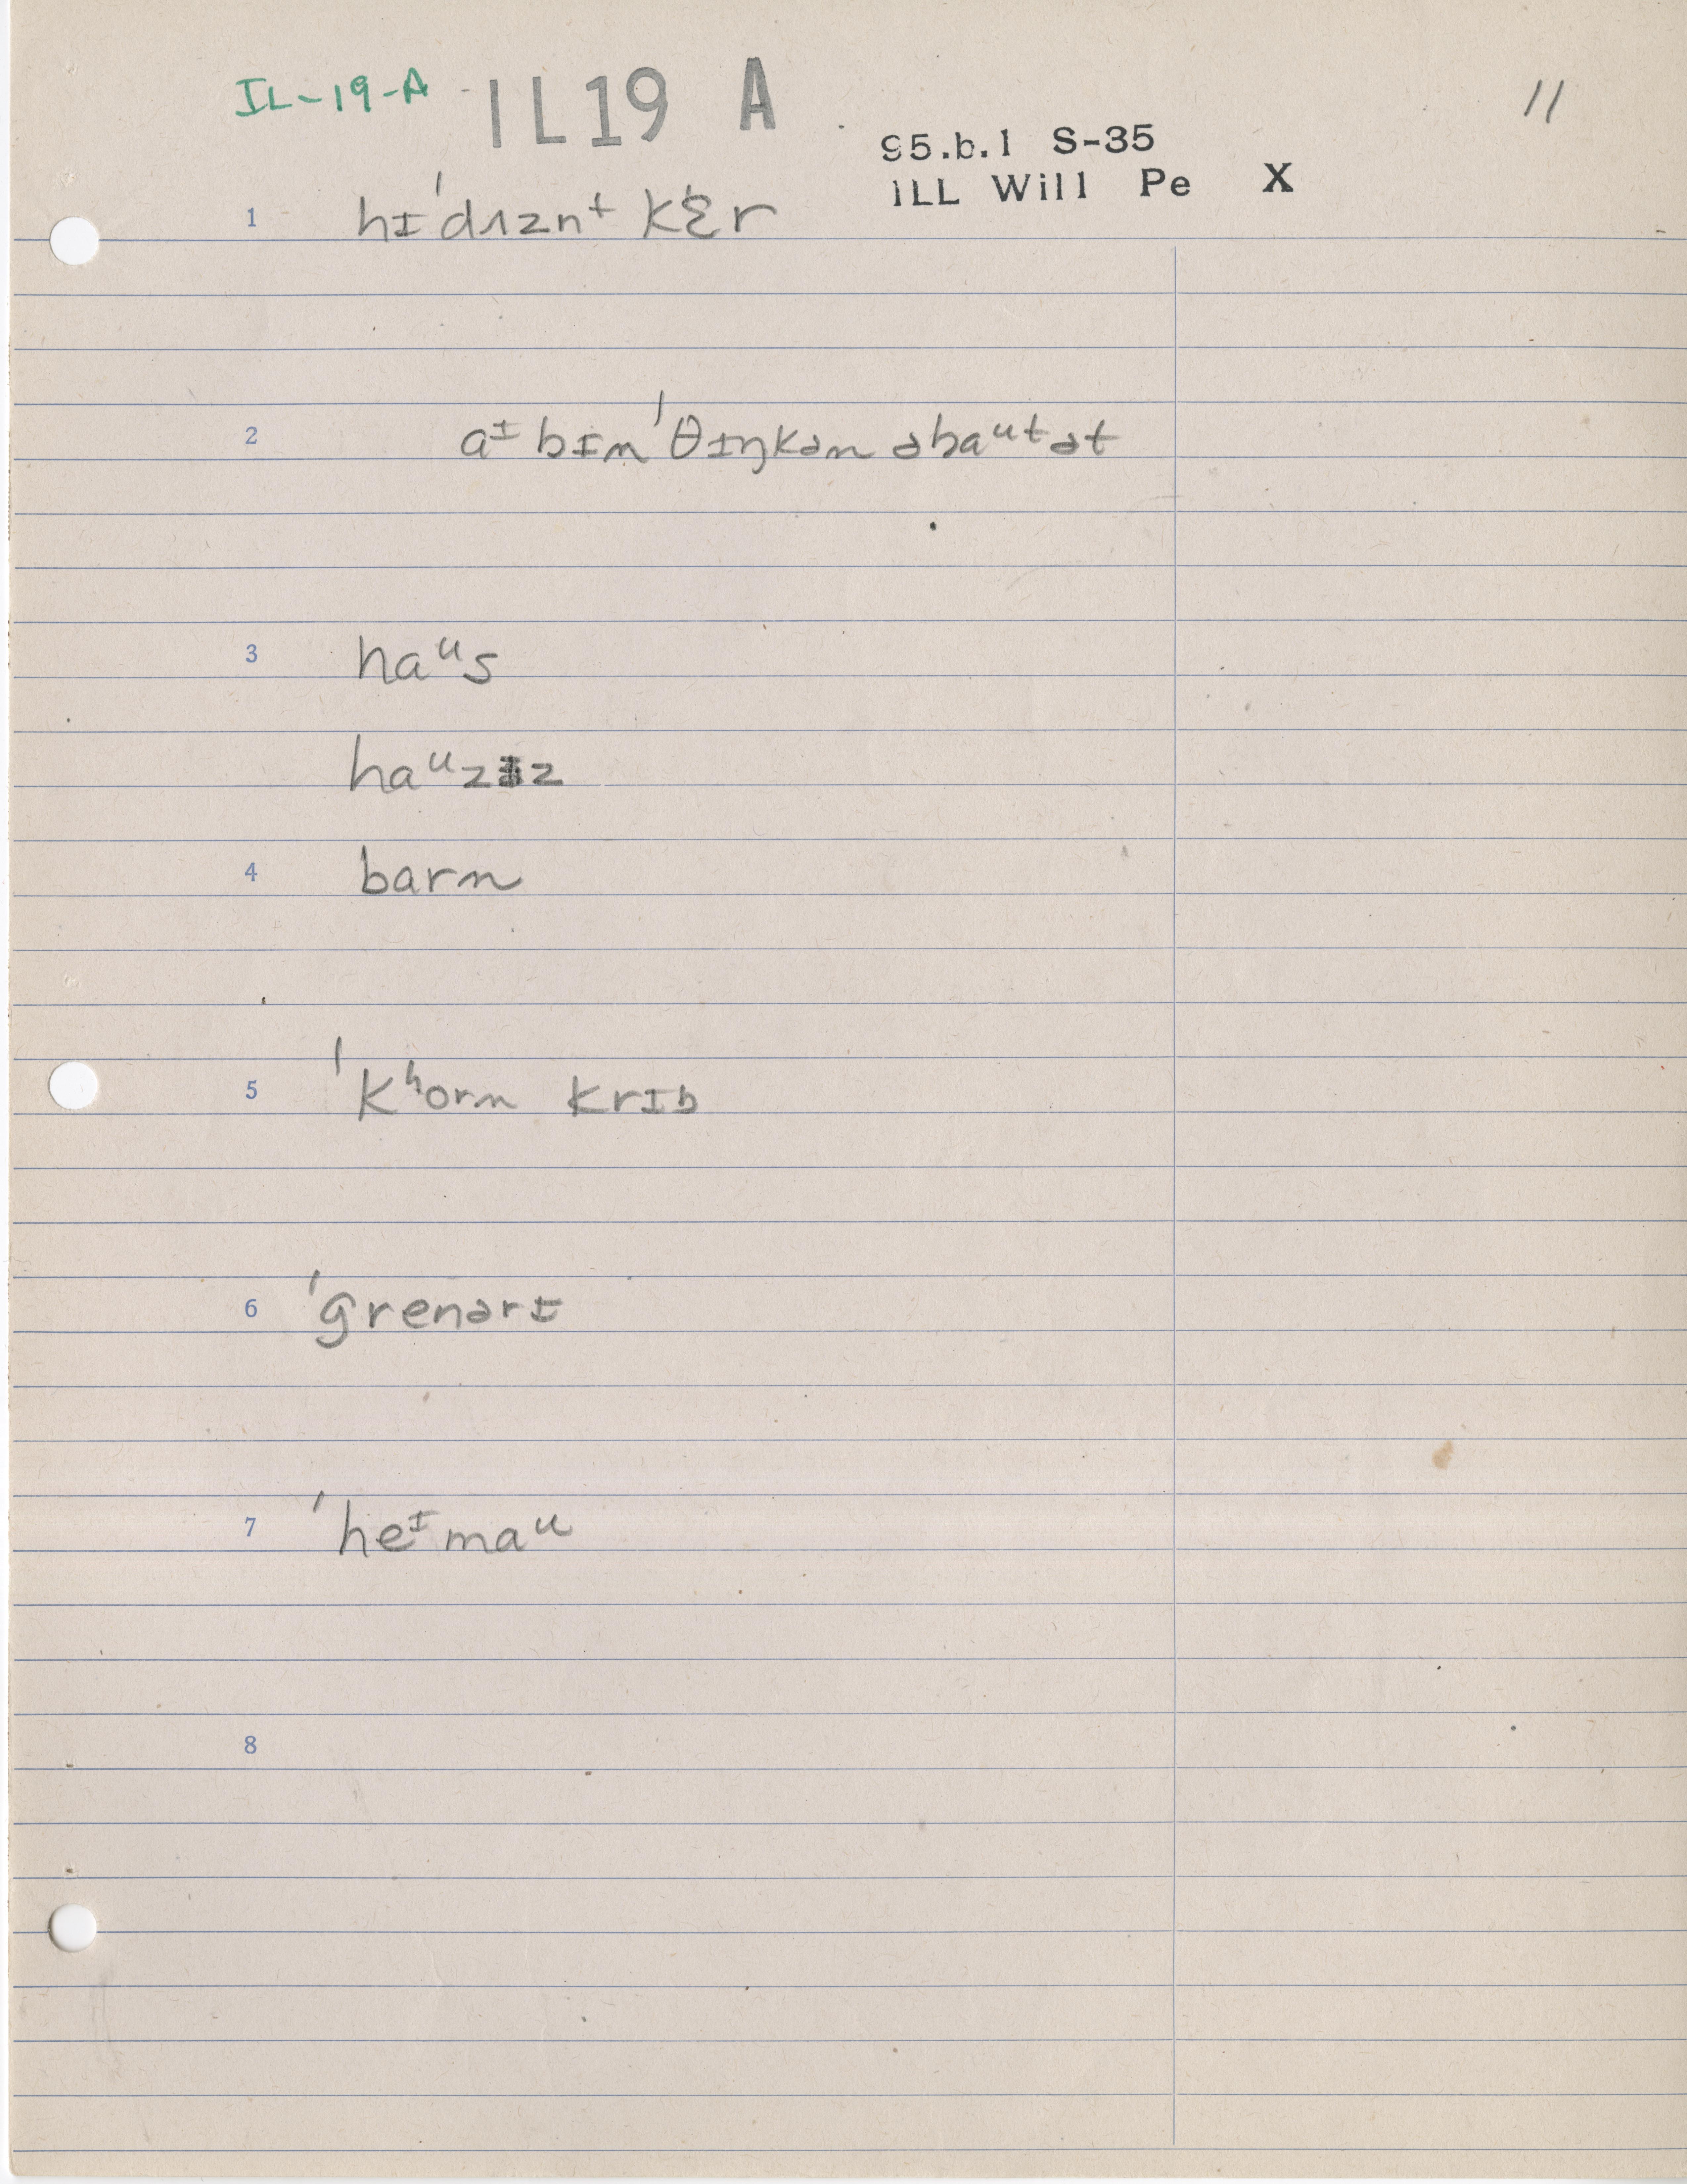 IL-19-A IL19 A 11
95.b.1 S-35
ILL Will Pe X
1 hɪˈdʌznᵗ kʰɛr
2 aᶦ bɪn ˈθɪŋkən əbaᵘtət
3 haᵘs
haᵘzɪz
4 barn
5 ˈkʰorn krɪb
6 ˈgrenərɪ
7 ˈheᶦmaᵘ
8